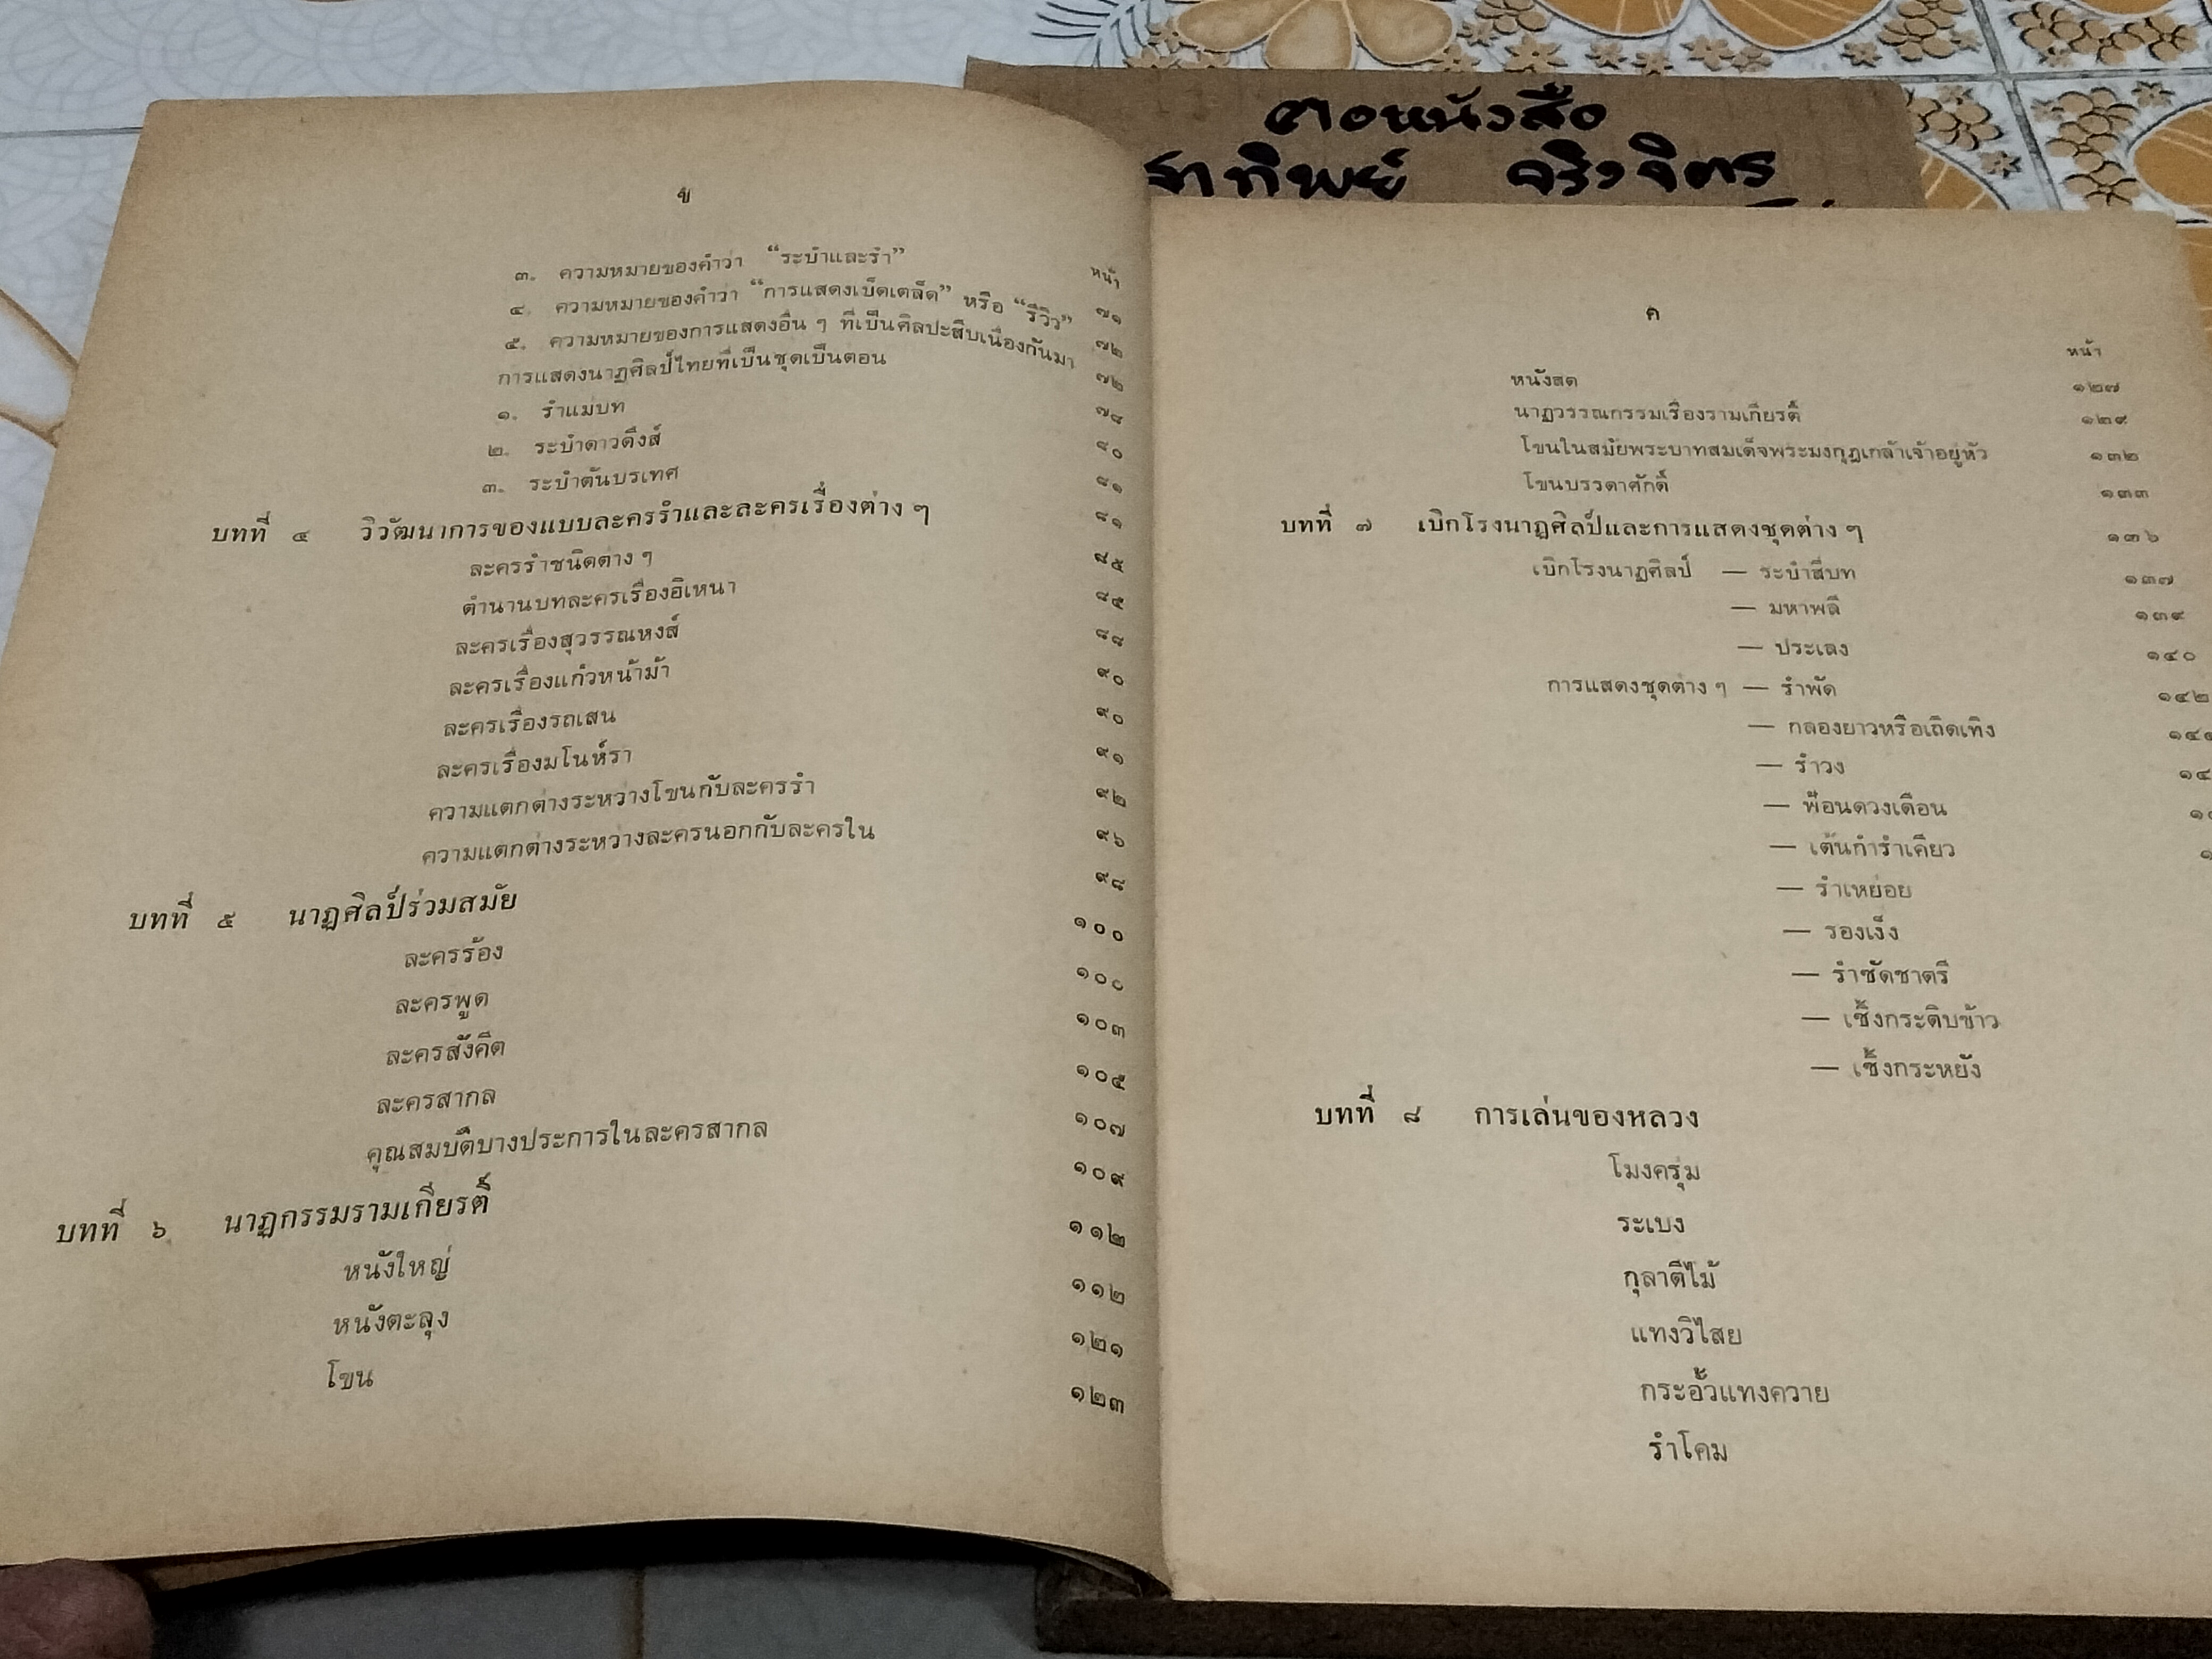 ฅอหนังสือ
ทิพย์ จริงจิตร
ข
หน้า
๓. ความหมายของคำว่า “ระบำและรำ” ๗๑
๔. ความหมายของคำว่า “การแสดงเบ็ดเตล็ด” หรือ “รีวิว” ๗๒
๕. ความหมายของการแสดงอื่น ๆ ที่เป็นศิลปะสืบเนื่องกันมา ๗๒
การแสดงนาฏศิลป์ไทยที่เป็นชุดเป็นตอน ๗๘
๑. รำแม่บท ๘๐
๒. ระบำดาวดึงส์ ๘๑
๓. ระบำดันบรเทศ ๘๑
บทที่ ๔ วิวัฒนาการของแบบละครรำและละครเรื่องต่าง ๆ ๘๕
ละครรำชนิดต่าง ๆ ๘๕
ตำนานบทละครเรื่องอิเหนา ๘๘
ละครเรื่องสุวรรณหงส์ ๙๐
ละครเรื่องแก้วหน้าม้า ๙๐
ละครเรื่องรถเสน ๙๑
ละครเรื่องมโนห์รา ๙๒
ความแตกต่างระหว่างโขนกับละครรำ ๙๖
ความแตกต่างระหว่างละครนอกกับละครใน ๙๘
บทที่ ๕ นาฏศิลป์ร่วมสมัย ๑๐๐
ละครร้อง ๑๐๐
ละครพูด ๑๐๓
ละครสังคีต ๑๐๕
ละครสากล ๑๐๗
คุณสมบัติบางประการในละครสากล ๑๐๙
บทที่ ๖ นาฏกรรมรามเกียรติ์ ๑๑๒
หนังใหญ่ ๑๑๒
หนังตะลุง ๑๒๑
โขน ๑๒๓
ค
หน้า
หนังสด ๑๒๗
นาฏวรรณกรรมเรื่องรามเกียรติ์ ๑๒๙
โขนในสมัยพระบาทสมเด็จพระมงกุฎเกล้าเจ้าอยู่หัว ๑๓๒
โขนบรรดาศักดิ์ ๑๓๓
บทที่ ๗ เบิกโรงนาฏศิลป์และการแสดงชุดต่าง ๆ ๑๓๖
เบิกโรงนาฏศิลป์ — ระบำสี่บท ๑๓๗
— มหาพลี ๑๓๙
— ประเลง ๑๔๐
การแสดงชุดต่าง ๆ — รำพัด ๑๔๒
— กลองยาวหรือเถิดเทิง
— รำวง
— ฟ้อนดวงเดือน
— เต้นกำรำเคียว
— รำเหย่อย
— รองเง็ง
— รำซัดชาตรี
— เซิ้งกระติบข้าว
— เซิ้งกระหยัง
บทที่ ๘ การเล่นของหลวง
โมงครุ่ม
ระเบง
กุลาตีไม้
แทงวิไสย
กระอั้วแทงควาย
รำโคม